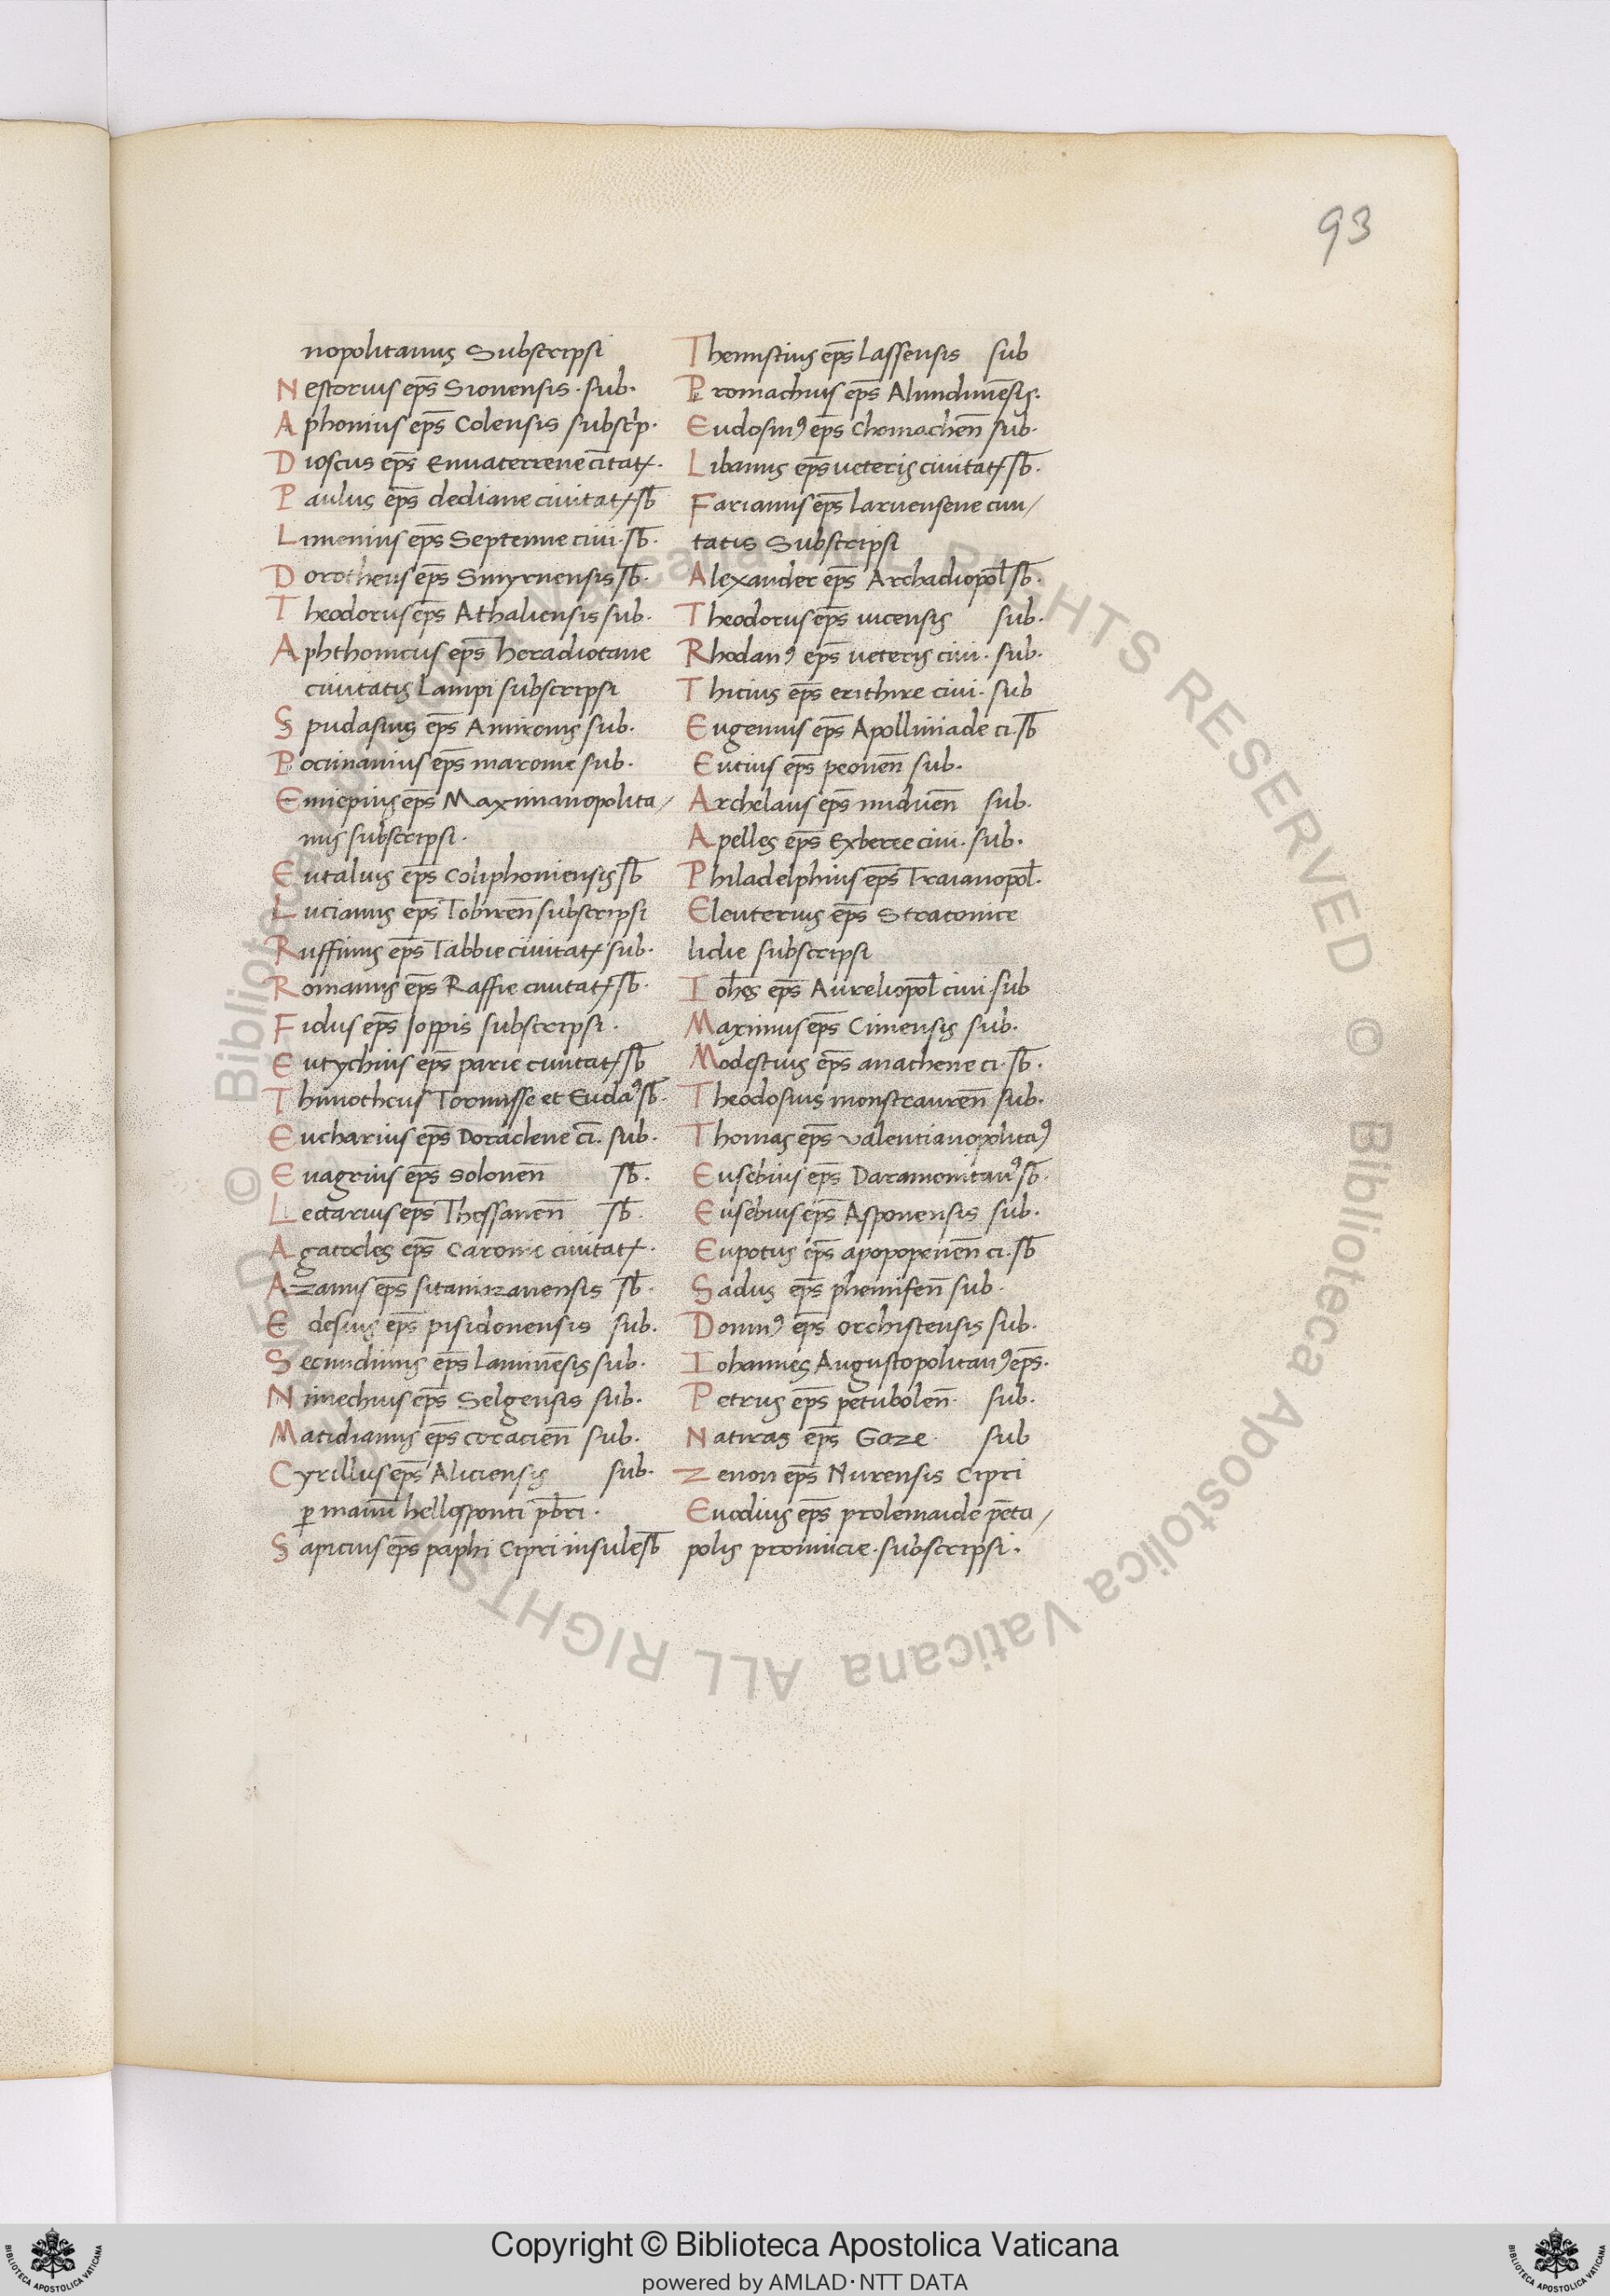 93
nopolitanus Subscripsi
Nestorius ep̄s Sionensis · sub.
Aphonius ep̄s Colensis subscp̄.
Dioscus ep̄s Enuaterrene cītatꝭ.
Paulus ep̄s dediane ciuitatꝭ sb̄
Limenius ep̄s Septenne ciui· sb̄.
Dorotheus ep̄s Smyrnensis sb̄.
Theodorus ep̄s Athaliensis sub.
Aphthonicus ep̄s heradiotane
ciuitatis Lampi subscripsi
Spudasius ep̄s Amironis sub.
Pocimanius ep̄s maronie sub.
Eniepius ep̄s Maximanopolita/
nus subscripsi.
Eutalius ep̄s Coliphoniensis sb̄
Lucianus ep̄s Tobiren̄ subscripsi
Ruffinus ep̄s Tabbie ciuitatꝭ sub.
Romanus ep̄s Raffie ciuitatꝭ sb̄.
Fidus ep̄s Joppis subscripsi.
Eutychius ep̄s parie ciuitatꝭ sb̄
Thimotheus Tormisse et Eudaꝰ sb̄.
Eucharius ep̄s Doraclene cī. sub.
Euagrius ep̄s Solonen̄ sb̄.
Lectarius ep̄s Thessanen̄ sb̄.
Agatocles ep̄s Caronie ciuitatꝭ.
Azanus ep̄s sitanizanensis sb̄.
Edesius ep̄s pisidonensis sub.
Secundinus ep̄s Laminēsis sub.
Nimechius ep̄s Selgensis sub.
Matidianus ep̄s coracien̄ sub.
Cyrillus ep̄s Aliciensis sub.
ꝑ manū hellesponti pb̄ri.
Sapicius ep̄s paphi Cipri insule sb̄
Themistius ep̄s Lassensis sub
Promachius ep̄s Alindinēsis.
Eudosinꝰ ep̄s Chomachen̄ sub.
Libanius ep̄s ueteris ciuitatꝭ sb̄.
Farianus ep̄s laruensene ciui/
tatis Subscripsi
Alexander ep̄s Archadiopol̄ sb̄.
Theodorus ep̄s uicensis sub.
Rhodanꝰ ep̄s ueteris ciui· sub.
Thicius ep̄s erithire ciui· sub
Eugenius ep̄s Apolliniade ci· sb̄
Eutius ep̄s peonen̄ sub.
Archelaus ep̄s miduen̄ sub.
Apelles ep̄s Exberee ciui· sub.
Philadelphius ep̄s Traianopol̄.
Eleuterius ep̄s Stratonice
lidie subscripsi
Ioh̄es ep̄s Aureliopol̄ ciui· sub
Maximus ep̄s Cimensis sub.
Modestius ep̄s anachene ci· sb̄.
Theodosius monstrauren̄ sub.
Thomas ep̄s valentianopolitaꝰ
Eusebius ep̄s Daramonitanꝰ sb̄.
Eusebius ep̄s Asponensis sub.
Eupotus ep̄s apopopenen̄ ci· sb̄
Sadus ep̄s phenisen̄ sub.
Domnꝰ ep̄s Orchistensis sub.
Iohannes Augustopolitanꝰ ep̄s.
Petrus ep̄s petubolen̄· sub.
Natiras ep̄s Gaze· sub
Zenon ep̄s Nurensis Cipri
Euodius ep̄s prolemaide pēta/
polis prouincie· subscripsi.
© Biblioteca Apostolica Vaticana ALL RIGHTS RESERVED © Biblioteca Apostolica Vaticana ALL RIGHTS RESERVED
Copyright © Biblioteca Apostolica Vaticana
powered by AMLAD·NTT DATA
BIBLIOTECA APOSTOLICA VATICANA
BIBLIOTECA APOSTOLICA VATICANA